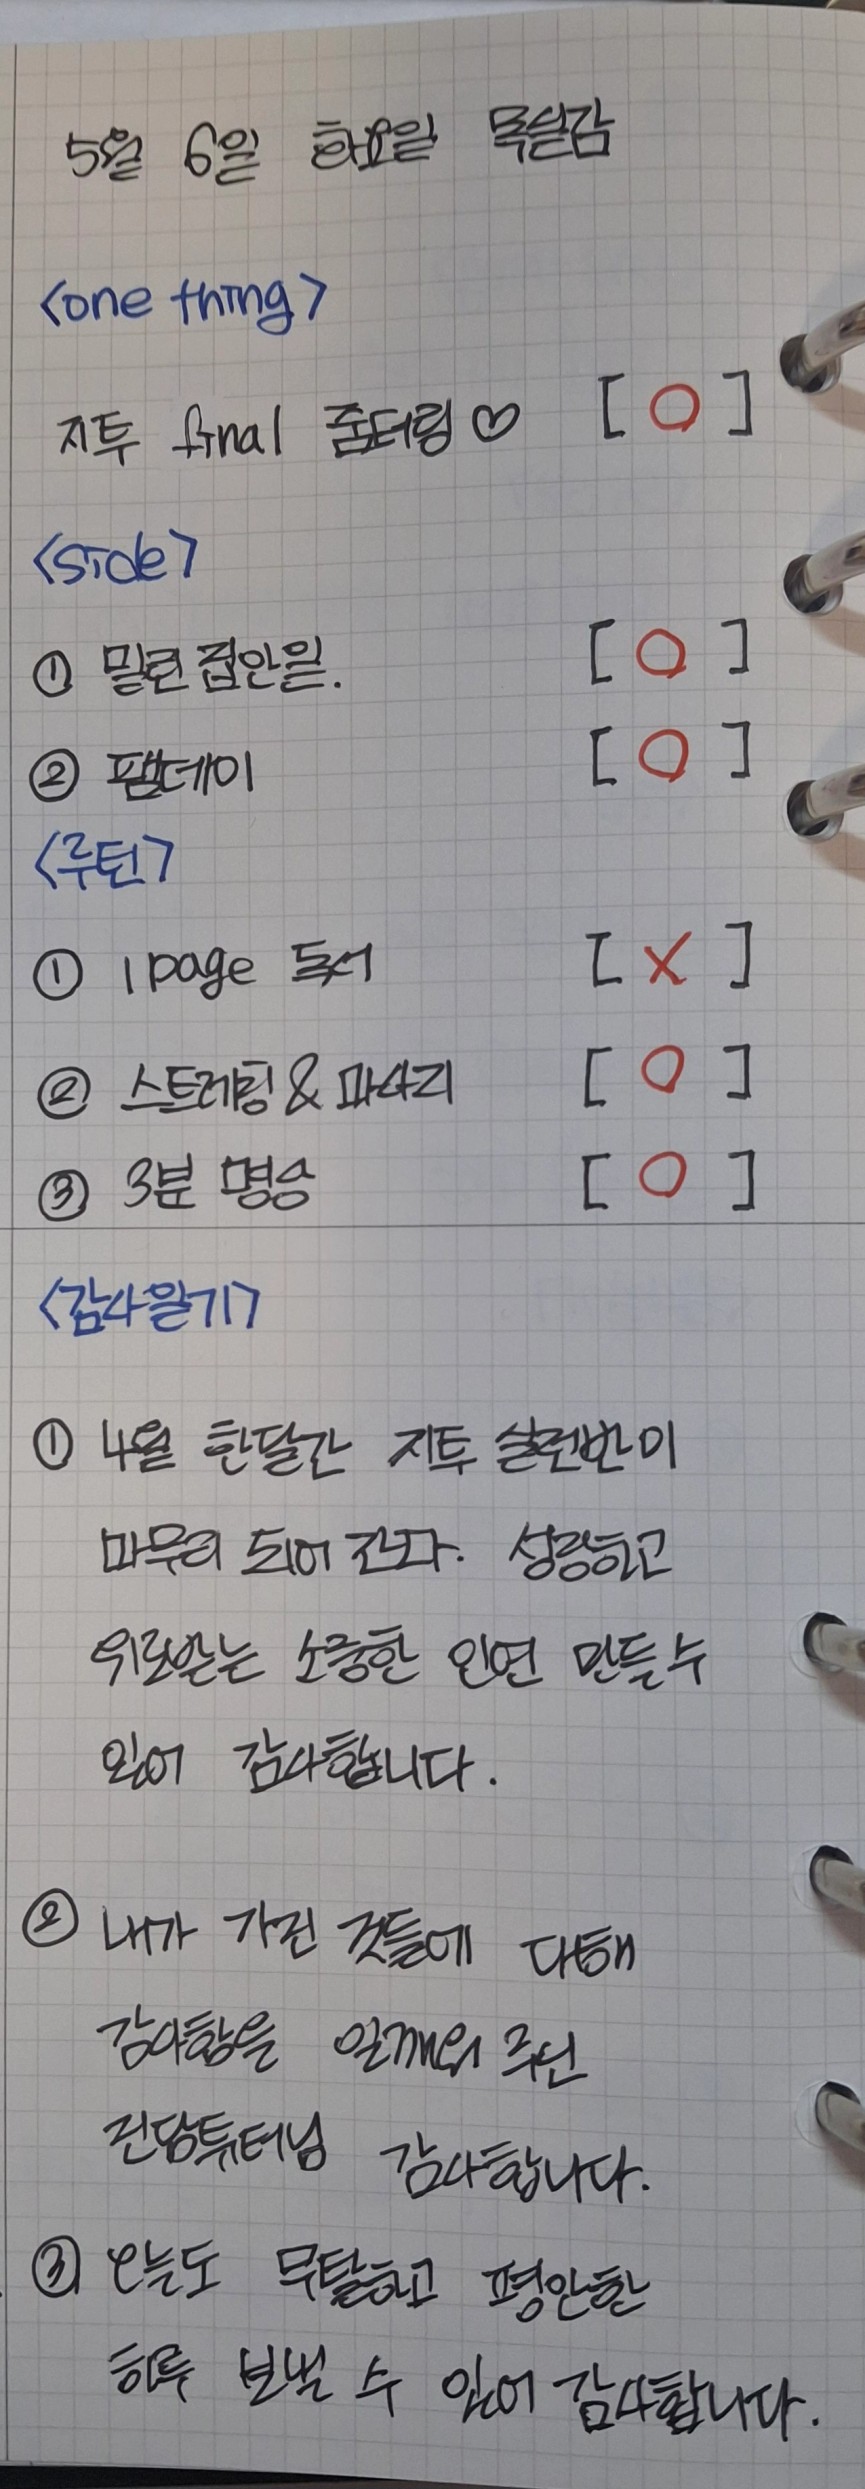 5월 6일 화요일 목실감
<one thing>
지투 final 줌터링♡ [ O ]
<side>
① 밀린 집안일. [ O ]
② 팸데이 [ O ]
<루틴>
① 1page 독서 [ X ]
② 스트레칭 & 마사지 [ O ]
③ 3분 명상 [ O ]
<감사일기>
① 4월 한달간 지투 실전반이
마무리 되어 간다. 성장하고
위로받는 소중한 인연 만들 수
있어 감사합니다.
② 내가 가진 것들에 대해
감사함을 일깨워 주신
진담튜터님 감사합니다.
③ 오늘도 무탈하고 평안한
하루 보낼 수 있어 감사합니다.